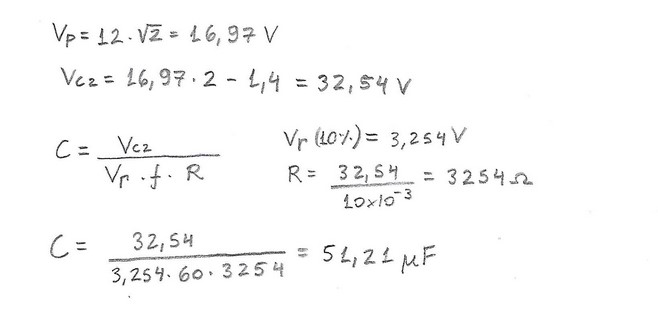 Vp = 12 · √2 = 16,97 V
Vc2 = 16,97 · 2 - 1,4 = 32,54 V
C = Vc2 / Vr · f · R
Vr (10%) = 3,254 V
R = 32,54 / 10×10⁻³ = 3254 Ω
C = 32,54 / 3,254 · 60 · 3254 = 51,21 μF